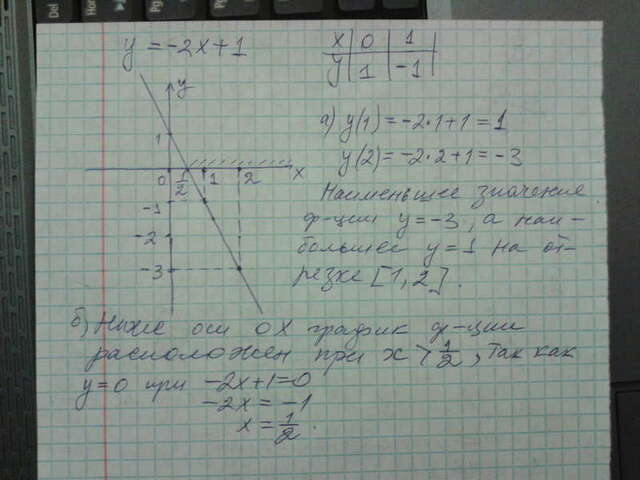 y = -2x+1
x | 0 | 1
y | 1 | -1
y
1
0 1/2 1 2 x
-1
-2
-3
а) y(1) = -2·1+1 = 1
y(2) = -2·2+1 = -3
Наименьшее значение
ф-ции y=-3, а наи-
большее y=1 на от-
резке [1,2].
б) Ниже оси OX график ф-ции
расположен при x > 1/2, так как
y=0 при -2x+1=0
-2x = -1
x = 1/2.
Del
End